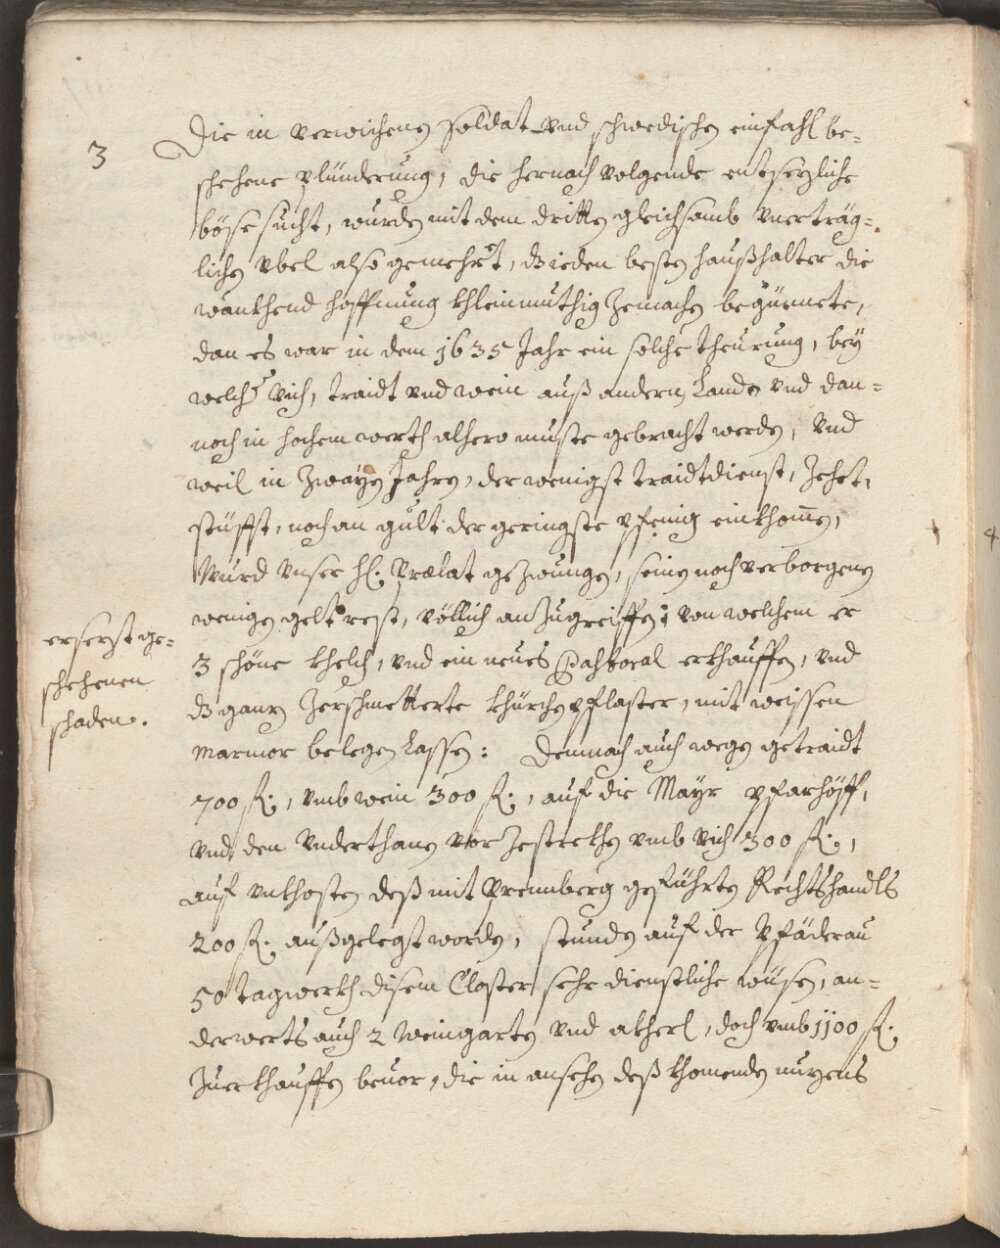 3
Die in verwichenen Soldat- vnd schwedischen einfahl be-
schehene plünderung, die hernach volgende entsezliche
böse sucht, wurden mit dem dritten gleichsamb vnerträg-
lichen vbel also gemehret, dz ieden besten haußhalter die
wankhend hoffnung khleinmüthig zemachen begünete,
dan es war in dem 1635 Jahr ein solche theurung, bey
welcher vich, traidt vnd wein auß andern Landen vnd dan-
noch in hochem werth alhero muste gebracht werden, Vnd
weil in zwayen Jahren, der wenigst traidtdienst, zehet,
stüfft, noch an gült der geringste pfenig einkhomen,
Wurd vnser hl: Prælat gezwungen, seinen noch verborgenen
wenigen geltrest, völlich anzugreiffen: von welchem er
3 schöne khelch, vnd ein neues Pastoral erkhauffen, vnd
dz ganz zerschmetterte khürchenpflaster, mit weissen
marmor belegen lassen: Demnach auch wegen getraidt
700 fl:, vmb wein 300 fl:, auf die Mayr pfarhöff,
vnd den Vnderthanen vor zestrekhen vmb vich 300 fl:,
auf vnkhosten deß mit Prennberg geführten Rechtshandls
200 fl: außgelegt worden, stunden auf der Pfäderau
50 tagwerkh disem Closter sehr dienstliche wüsen, an-
derwerts auch 2 Weingarten vnd akherl, doch vmb 1100 fl:
zuerkhauffen beuor, die in ansehen deß khomenden nuzens
ersezt ge-
schehenen
schaden.